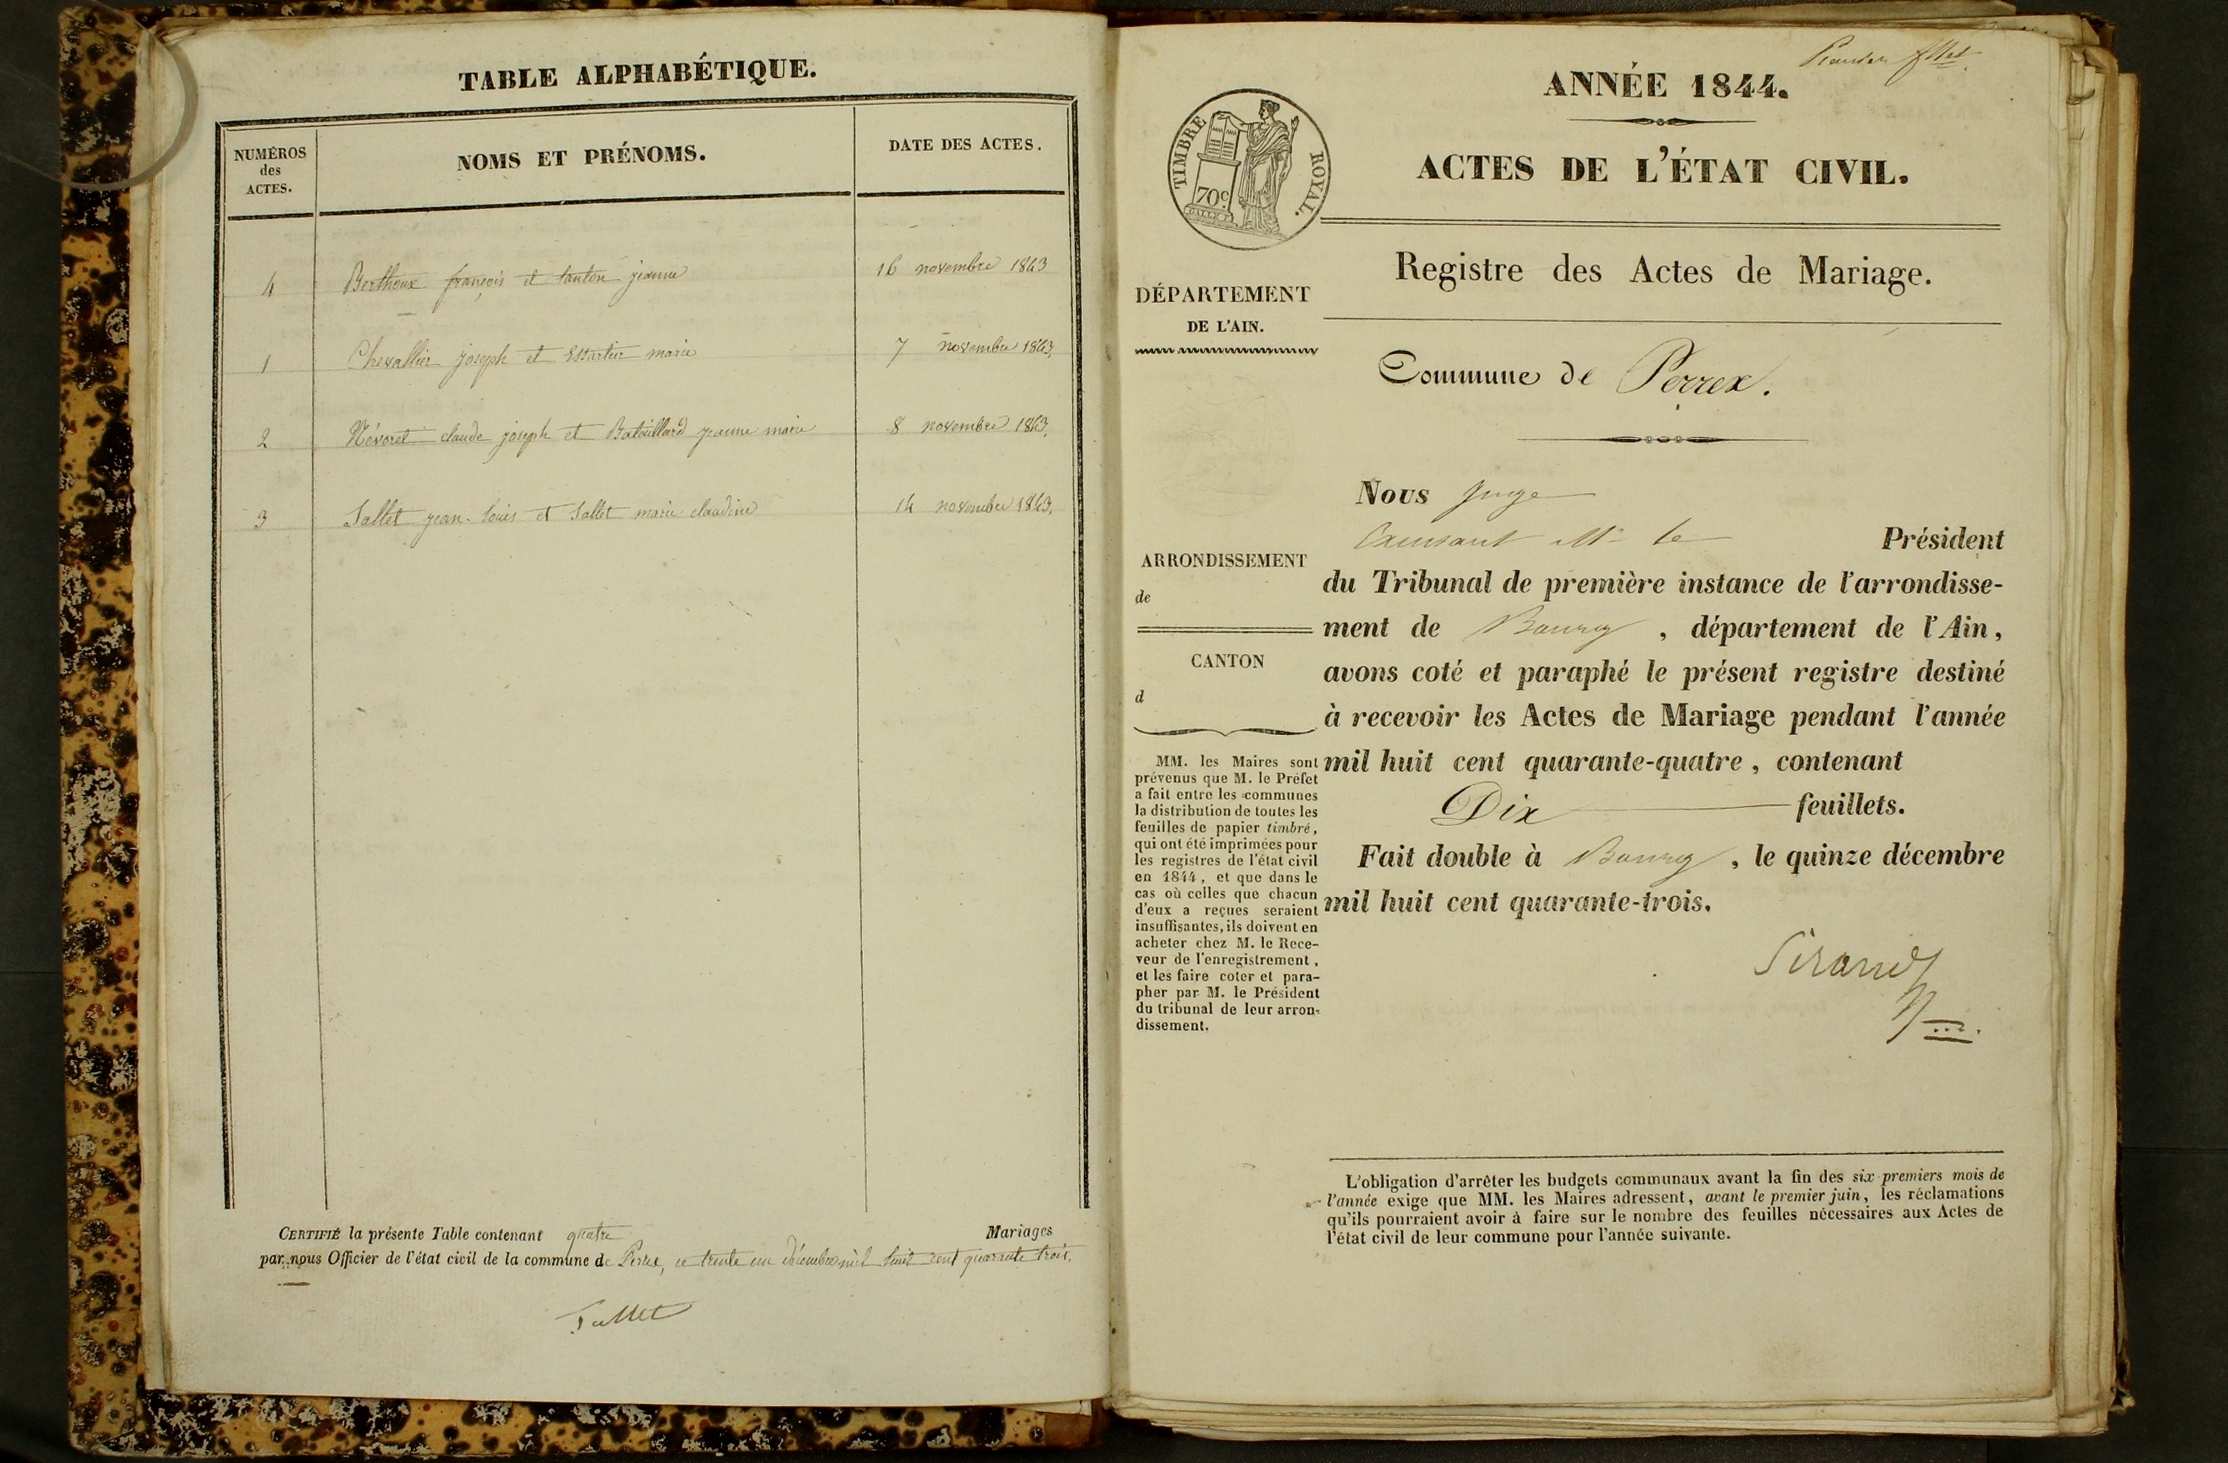 TABLE ALPHABÉTIQUE.
NUMÉROS
des
ACTES.
NOMS ET PRÉNOMS.
DATE DES ACTES.
4 Berthoux françois et tanton jeanne 16 novembre 1843
1 Chevallier joseph et marie 7 novembre 1843,
2 Névoret claude joseph et Batoillard jeanne marie 8 novembre 1843,
3 Sallet jean-louis et Sallet marie claudine 14 novembre 1843,
CERTIFIÉ la présente Table contenant quatre Mariages
par nous Officier de l'état civil de la commune de Perrex, ce trente un décembre mil huit cent quarante trois.
Sallet
ANNÉE 1844.
ACTES DE L'ÉTAT CIVIL.
TIMBRE ROYAL.
70c
Registre des Actes de Mariage.
DÉPARTEMENT
DE L'AIN.
Commune de Perrex.
Nous Juge
Mr le Président
du Tribunal de première instance de l'arrondisse-
ment de Bourg, département de l'Ain,
avons coté et paraphé le présent registre destiné
à recevoir les Actes de Mariage pendant l'année
mil huit cent quarante-quatre, contenant
Dix feuillets.
Fait double à Bourg, le quinze décembre
mil huit cent quarante-trois.
Sirand
ARRONDISSEMENT
de
CANTON
d
MM. les Maires sont
prévenus que M. le Préfet
a fait entre les communes
la distribution de toutes les
feuilles de papier timbré,
qui ont été imprimées pour
les registres de l'état civil
en 1844, et que dans le
cas où celles que chacun
d'eux a reçues seraient
insuffisantes, ils doivent en
acheter chez M. le Rece-
veur de l'enregistrement,
et les faire coter et para-
pher par M. le Président
du tribunal de leur arron-
dissement.
L'obligation d'arrêter les budgets communaux avant la fin des six premiers mois de
l'année exige que MM. les Maires adressent, avant le premier juin, les réclamations
qu'ils pourraient avoir à faire sur le nombre des feuilles nécessaires aux Actes de
l'état civil de leur commune pour l'année suivante.